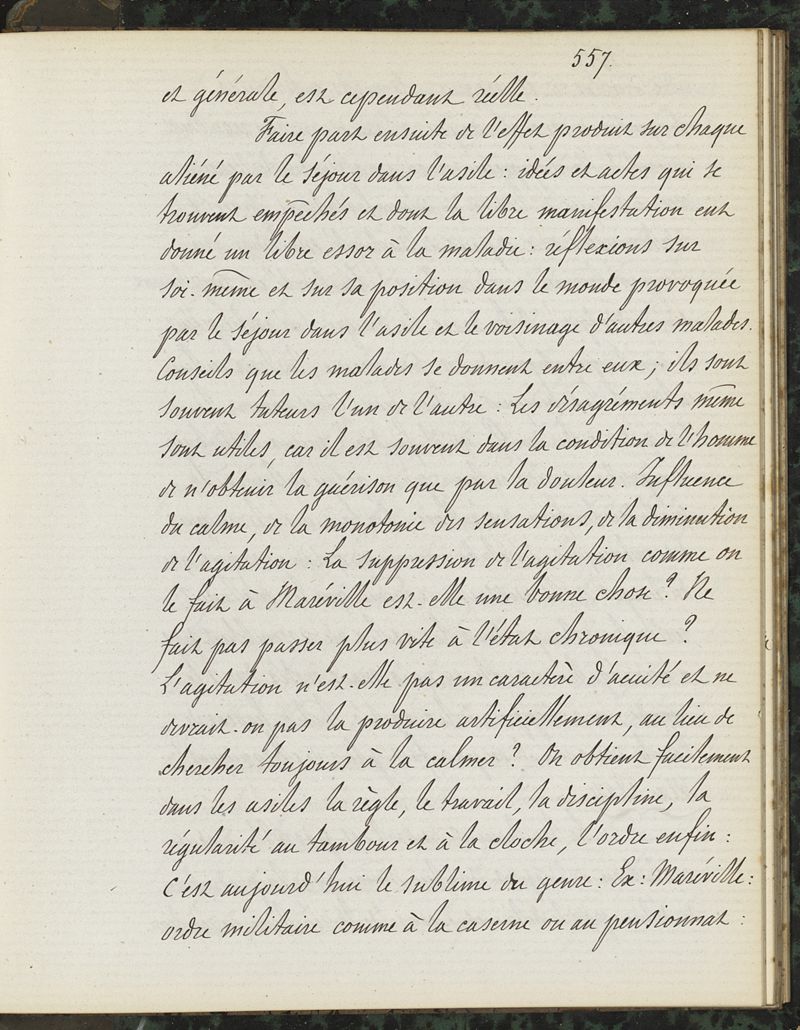 557.
et générale, est cependant réelle.
Faire part ensuite de l'effet produit sur chaque
aliéné par le séjour dans l'asile : idées et actes qui se
trouvent empêchés et dont la libre manifestation eut
donné un libre essor à la maladie : réflexions sur
soi-même et sur sa position dans le monde provoquée
par le séjour dans l'asile et le voisinage d'autres malades.
Conseils que les malades se donnent entre eux ; ils sont
souvent tuteurs l'un de l'autre : Les désagréments même
sont utiles, car il est souvent dans la condition de l'homme
de n'obtenir la guérison que par la douleur. Influence
du calme, de la monotonie des sensations, de la diminution
de l'agitation : La suppression de l'agitation comme on
le fait à Maréville est-elle une bonne chose ? Ne
fait pas passer plus vite à l'état chronique ?
L'agitation n'est-elle pas un caractère d'acuité et ne
devrait-on pas la produire artificiellement, au lieu de
chercher toujours à la calmer ? On obtient facilement
dans les asiles la règle, le travail, la discipline, la
régularité au tambour et à la cloche, l'ordre enfin :
C'est aujourd'hui le sublime du genre : Ex : Maréville :
ordre militaire comme à la caserne ou au pensionnat :